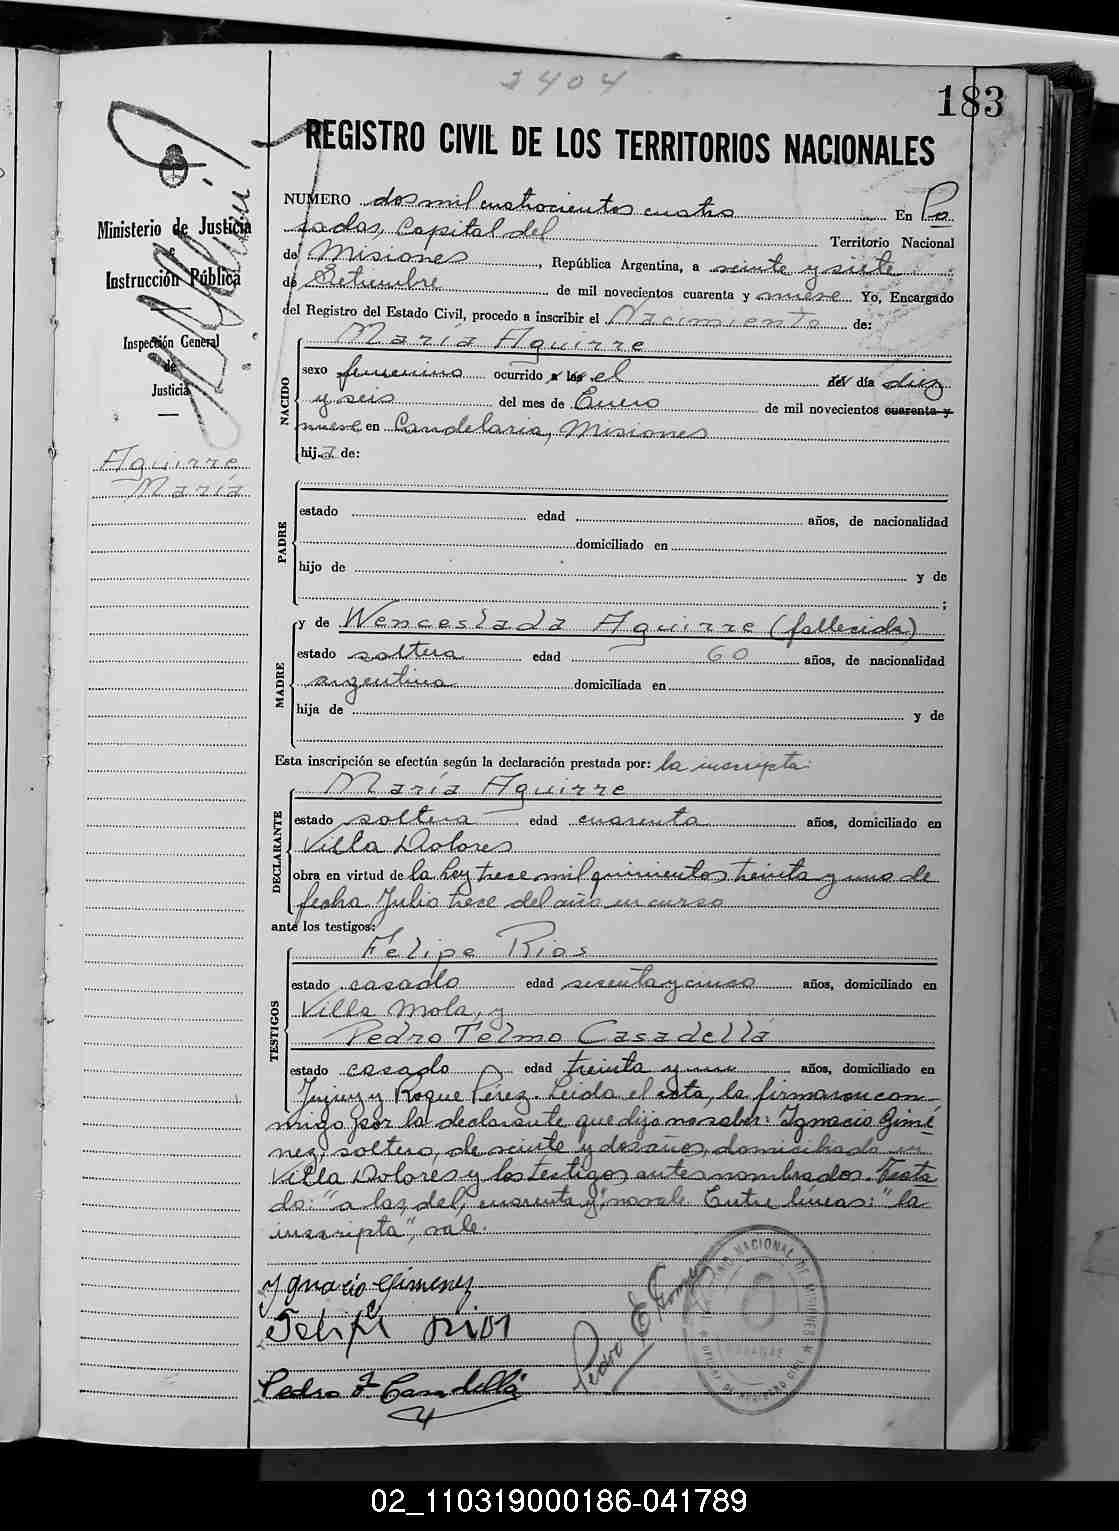 2404
183
REGISTRO CIVIL DE LOS TERRITORIOS NACIONALES
Ministerio de Justicia
e
Instrucción Pública
Inspección General
de
Justicia
Aguirre
María
NUMERO dos mil cuatrocientos cuatro En Po
sadas, Capital del Territorio Nacional
de Misiones, República Argentina, a veinte y siete
de Setiembre de mil novecientos cuarenta y nueve Yo, Encargado
del Registro del Estado Civil, procedo a inscribir el Nacimiento de:
María Aguirre
NACIDO
sexo femenino ocurrido a las el del día diez
y seis del mes de Enero de mil novecientos cuarenta y
nueve en Candelaria, Misiones
hija de:
PADRE
estado edad años, de nacionalidad
domiciliado en
hijo de y de
;
MADRE
y de Wenceslada Aguirre (fallecida)
estado soltera edad 60 años, de nacionalidad
argentina domiciliada en
hija de y de
Esta inscripción se efectúa según la declaración prestada por: la inscripta:
DECLARANTE
María Aguirre
estado soltera edad cuarenta años, domiciliado en
Villa Dolores
obra en virtud de la ley trece mil quinientos treinta y uno de
fecha Julio trece del año en curso
ante los testigos:
TESTIGOS
Felipe Rios
estado casado edad sesenta y cinco años, domiciliado en
Villa Mola, y
Pedro Telmo Casadellá
estado casado edad treinta y uno años, domiciliado en
Jujuy y Roque Pérez. Leida el acta, la firmaron con-
migo por la declarante que dijo no saber: Ignacio Gimé
nez, soltero, de veinte y dos años, domiciliado en
Villa Dolores y los testigos antes nombrados. Testa
do: "a las, del, cuarenta y", no vale. Entre líneas: "la
inscripta", vale.
Ygnacio Gimenez
Felipe rios
Pedro T Casadellá
Pedro E
NACIONAL DE MISIONES
POSADAS
REGISTRO CIVIL
02_110319000186-041789